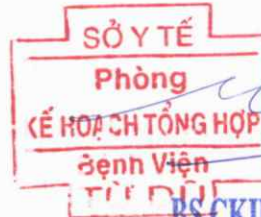 SỞ Y TẾ
Phòng
KẾ HOẠCH TỔNG HỢP
Bệnh Viện
TỪ DŨ
BS.CKII